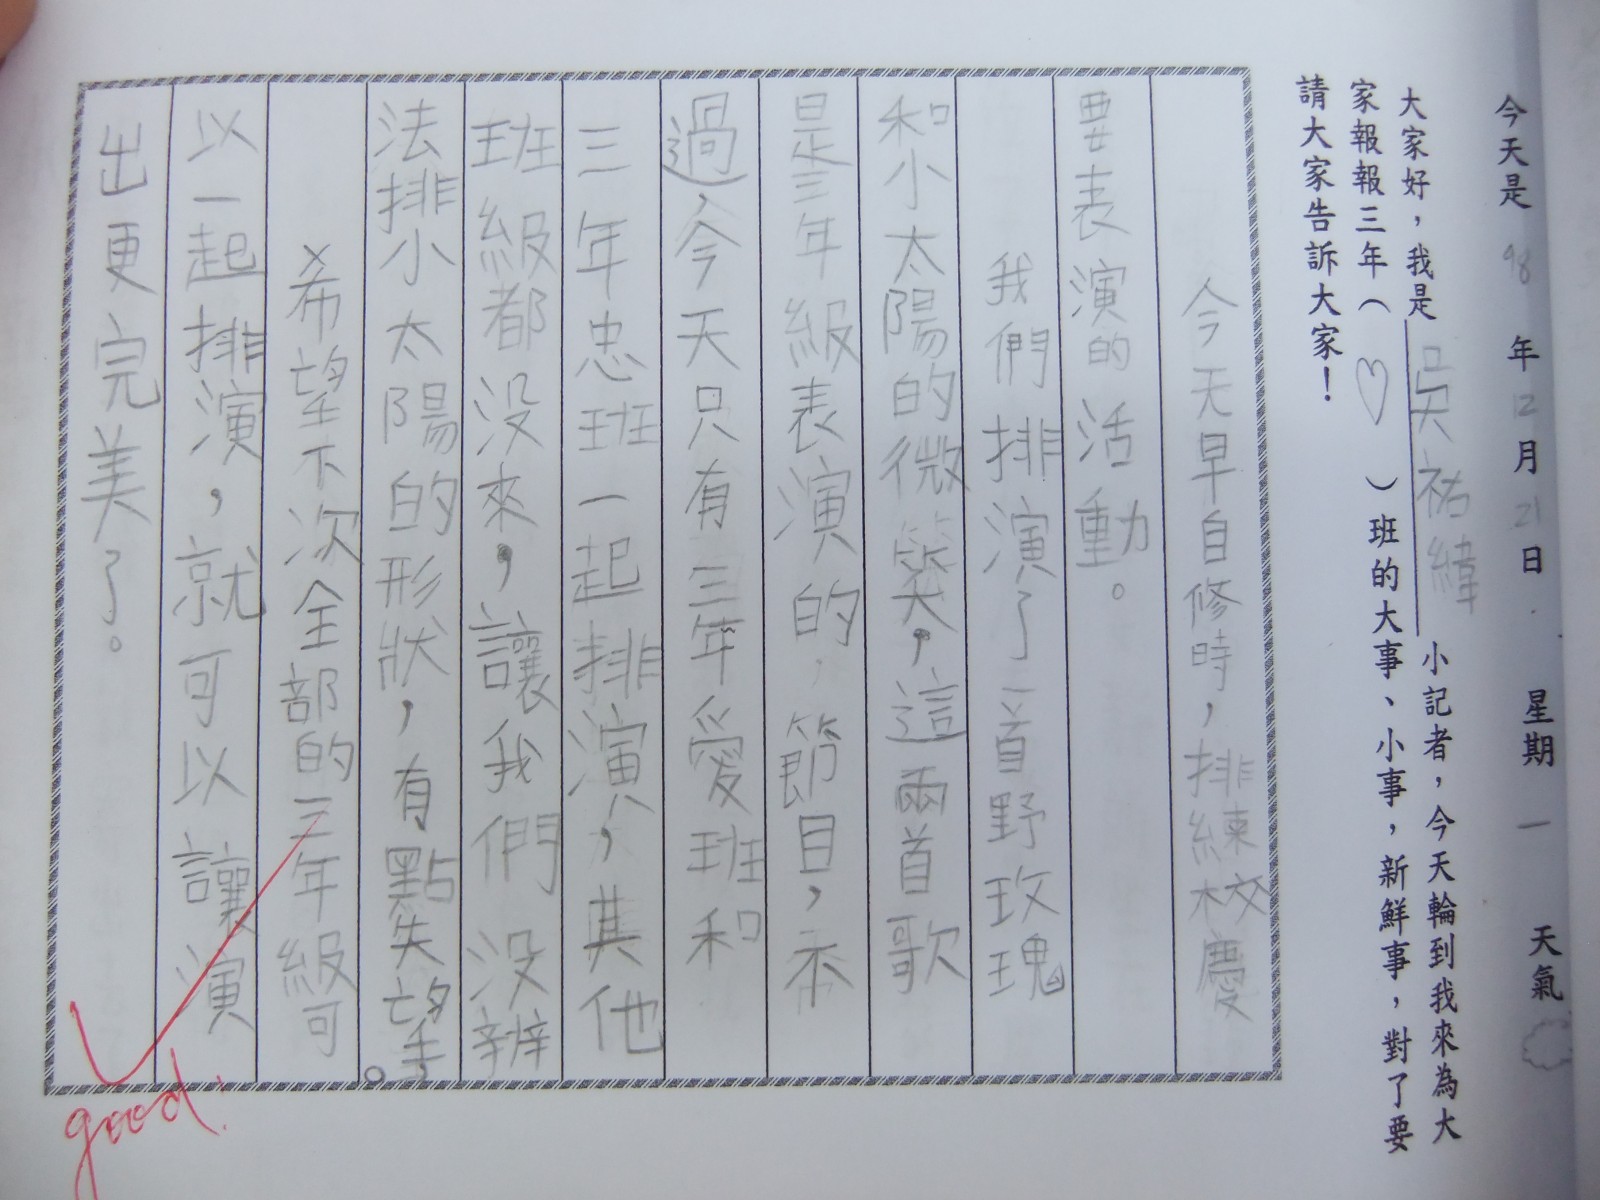 今天是 98 年 12 月 21 日. 星期 一 天氣
大家好，我是吳祐緯小記者，今天輪到我來為大
家報報三年（♡）班的大事、小事，新鮮事，對了要
請大家告訴大家！
今天早自修時，排練校慶
要表演的活動。
我們排演了一首野玫瑰
和小太陽的微笑，這兩首歌
是三年級表演的，節目，不
過，今天只有三年愛班和
三年忠班一起排演，其他
班級都沒來，讓我們沒辨
法排小太陽的形狀，有點失望。
希望下次全部的三年級可
以一起排演，就可以讓演
出更完美了。
good!